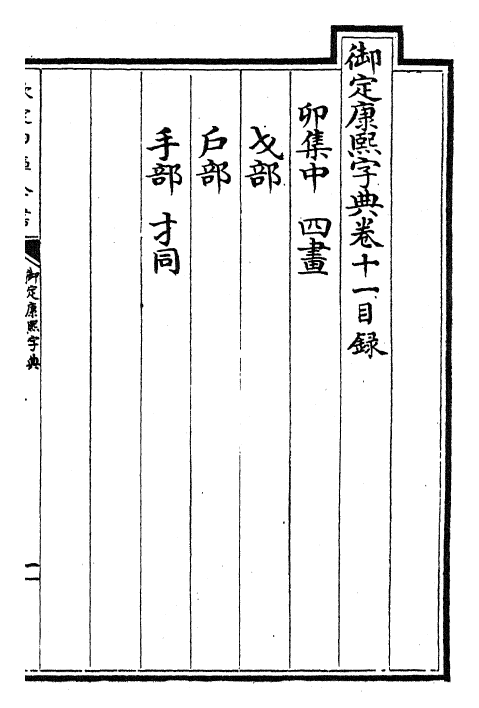 御定康熙字典卷十一目録
卯集中 四畫
戈部
戶部
手部 才同
御定康熙字典
一